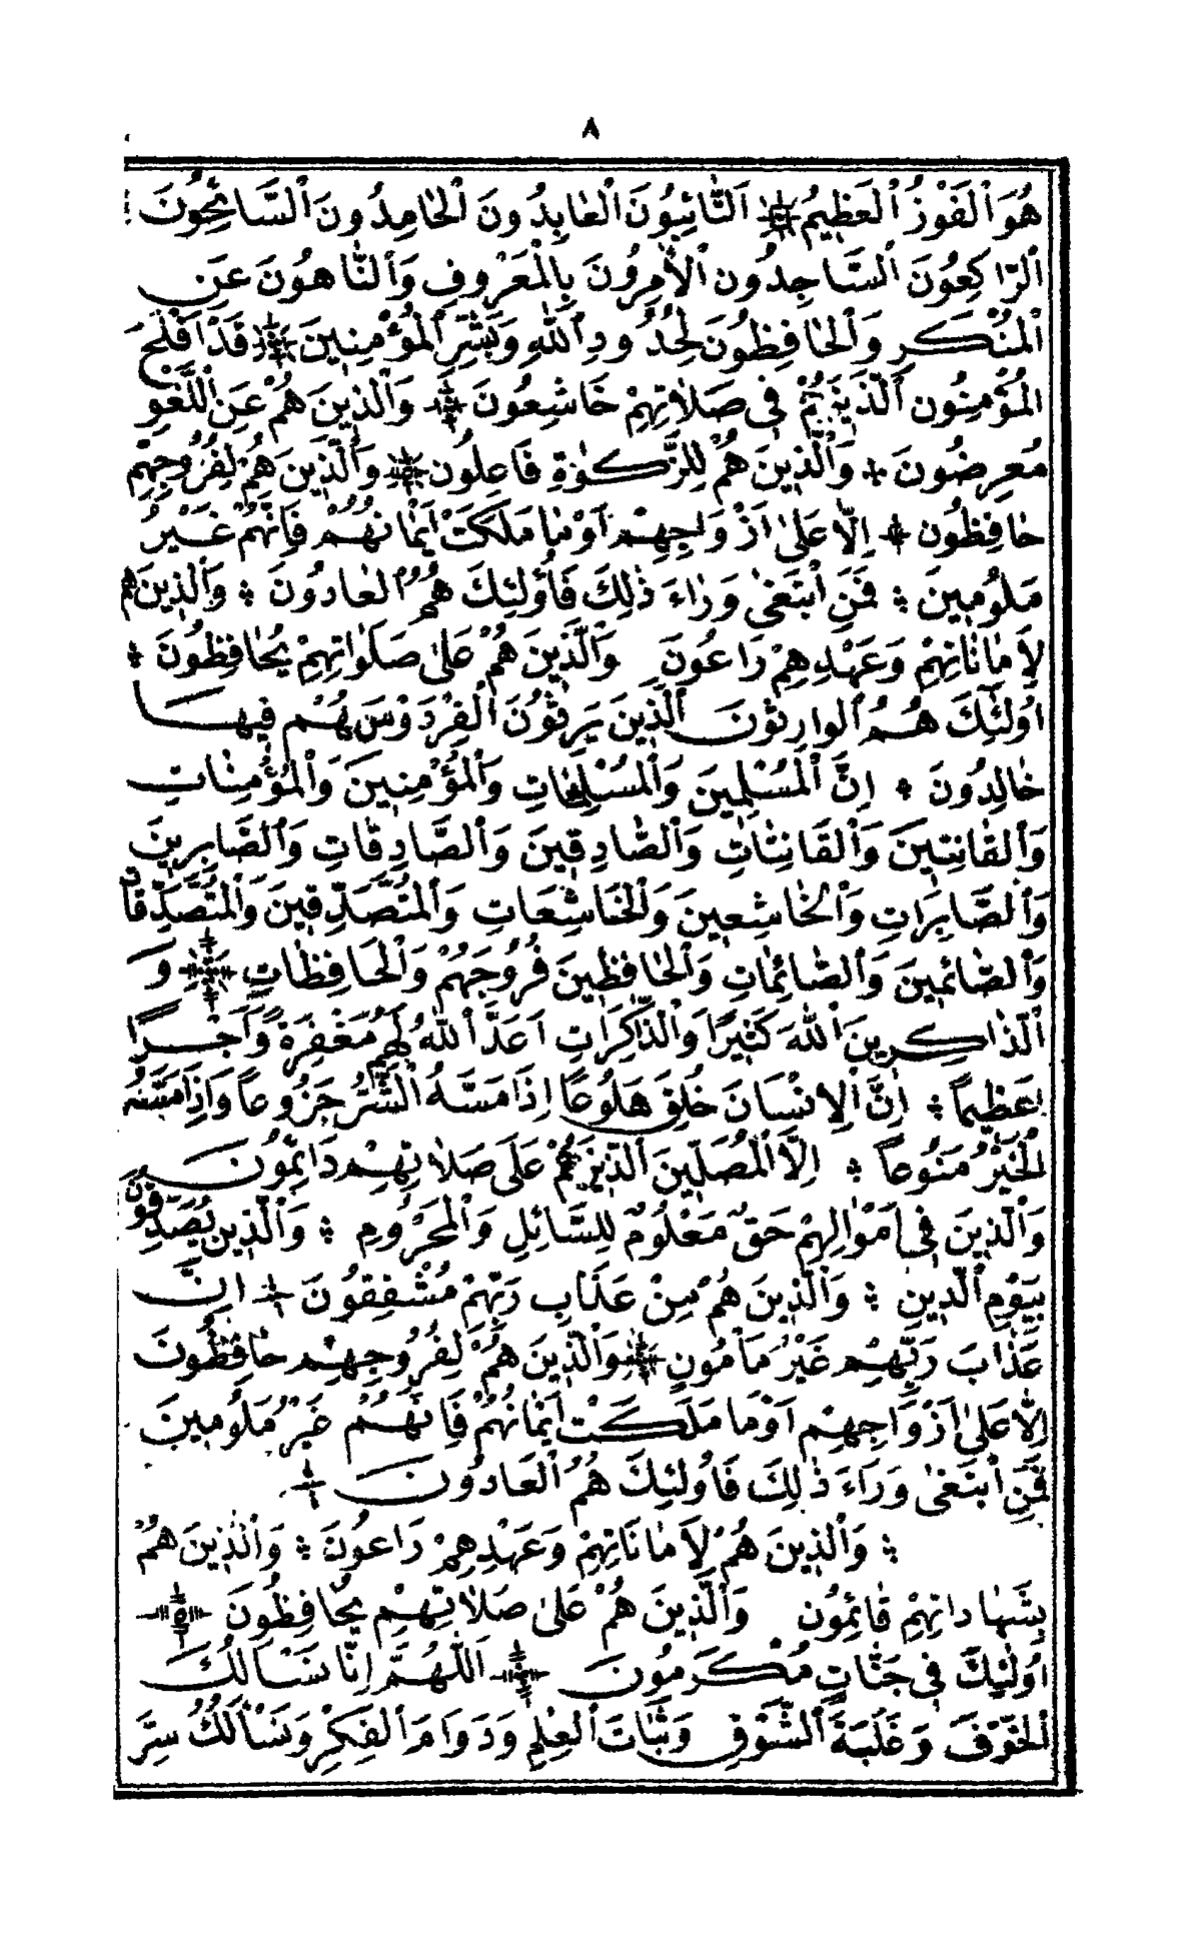 ٨
هُوَ ٱلْفَوْزُ ٱلْعَظِيمُ ۞ اَلتَّائِبُونَ ٱلْعَابِدُونَ ٱلْحَامِدُونَ ٱلسَّائِحُونَ
ٱلرَّاكِعُونَ ٱلسَّاجِدُون ٱلْأٰمِرُونَ بِالْمَعْرُوفِ وَٱلنَّاهُونَ عَنِ
ٱلْمُنْكَرِ وَٱلْحَافِظُونَ لِحُدُودِ ٱللّٰهِ وَبَشِّرِ ٱلْمُؤْمِنِينَ ۞ قَدْ اَفْلَحَ
ٱلْمُؤْمِنُون ٱلَّذِينَ هُمْ فِى صَلَاتِهِمْ خَاشِعُونَ ۞ وَٱلَّذِينَ هُمْ عَنِ ٱللَّغْوِ
مُعْرِضُونَ ۞ وَٱلَّذِينَ هُمْ لِلزَّكٰوةِ فَاعِلُون ۞ وَٱلَّذِينَ هُمْ لِفُرُوجِهِمْ
حَافِظُون ۞ اِلَّا عَلٰى اَزْوَاجِهِمْ اَوْ مَا مَلَكَتْ اَيْمَانُهُمْ فَاِنَّهُمْ غَيْرُ
مَلُومِينَ ؞ فَمَنِ ٱبْتَغٰى وَرَاءَ ذٰلِكَ فَاُولٰئِكَ هُمُ ٱلْعَادُونَ ؞ وَٱلَّذِينَ هُمْ
لِاَمَانَاتِهِمْ وَعَهْدِهِمْ رَاعُونَ وَٱلَّذِينَ هُمْ عَلٰى صَلَوَاتِهِمْ يُحَافِظُونَ ۞
اُولٰئِكَ هُمُ ٱلْوَارِثُونَ ٱلَّذِينَ يَرِثُونَ ٱلْفِرْدَوْسَ هُمْ فِيهَا
خَالِدُونَ ۞ اِنَّ ٱلْمُسْلِمِينَ وَٱلْمُسْلِمَاتِ وَٱلْمُؤْمِنِينَ وَٱلْمُؤْمِنَاتِ
وَٱلْقَانِتِينَ وَٱلْقَانِتَاتِ وَٱلصَّادِقِينَ وَٱلصَّادِقَاتِ وَٱلصَّابِرِينَ
وَٱلصَّابِرَاتِ وَٱلْخَاشِعِينَ وَٱلْخَاشِعَاتِ وَٱلْمُتَصَدِّقِينَ وَٱلْمُتَصَدِّقَاتِ
وَٱلصَّائِمِينَ وَٱلصَّائِمَاتِ وَٱلْحَافِظِينَ فُرُوجَهُمْ وَٱلْحَافِظَاتِ ۞ وَ
ٱلذَّاكِرِينَ ٱللّٰهَ كَثِيرًا وَٱلذَّاكِرَاتِ اَعَدَّ ٱللّٰهُ لَهُمْ مَغْفِرَةً وَاَجْرًا
عَظِيمًا ؞ اِنَّ ٱلْاِنْسَانَ خُلِقَ هَلُوعًا اِذَا مَسَّهُ ٱلشَّرُّ جَزُوعًا وَاِذَا مَسَّهُ
ٱلْخَيْرُ مَنُوعًا ؞ اِلَّا ٱلْمُصَلِّينَ ٱلَّذِينَ هُمْ عَلَى صَلَاتِهِمْ دَائِمُونَ
وَٱلَّذِينَ فِى اَمْوَالِهِمْ حَقٌّ مَعْلُومٌ لِلسَّائِلِ وَٱلْمَحْرُومِ ؞ وَٱلَّذِينَ يُصَدِّقُونَ
بِيَوْمِ ٱلدِّينِ ؞ وَٱلَّذِينَ هُمْ مِنْ عَذَابِ رَبِّهِمْ مُشْفِقُونَ ۞ اِنَّ
عَذَابَ رَبِّهِمْ غَيْرُ مَأْمُونٍ ۞ وَٱلَّذِينَ هُمْ لِفُرُوجِهِمْ حَافِظُونَ
اِلَّا عَلٰى اَزْوَاجِهِمْ اَوْ مَا مَلَكَتْ اَيْمَانُهُمْ فَاِنَّهُمْ غَيْرُ مَلُومِينَ
فَمَنِ ٱبْتَغٰى وَرَاءَ ذٰلِكَ فَاُولٰئِكَ هُمُ ٱلْعَادُونَ ۞
؞ وَٱلَّذِينَ هُمْ لِاَمَانَاتِهِمْ وَعَهْدِهِمْ رَاعُونَ ؞ وَٱلَّذِينَ هُمْ
بِشَهَادَاتِهِمْ قَائِمُون وَٱلَّذِينَ هُمْ عَلٰى صَلَاتِهِمْ يُحَافِظُونَ ۞
اُولٰئِكَ فِى جَنَّاتٍ مُكْرَمُونَ ۞ اَللّٰهُمَّ اِنَّا نَسْأَلُكَ
ٱلْخَوْفَ وَغَلَبَةَ ٱلشَّوْقِ وَثَبَاتَ ٱلْعِلْمِ وَدَوَامَ ٱلْفِكْرِ وَنَسْأَلُكَ سِرَّ